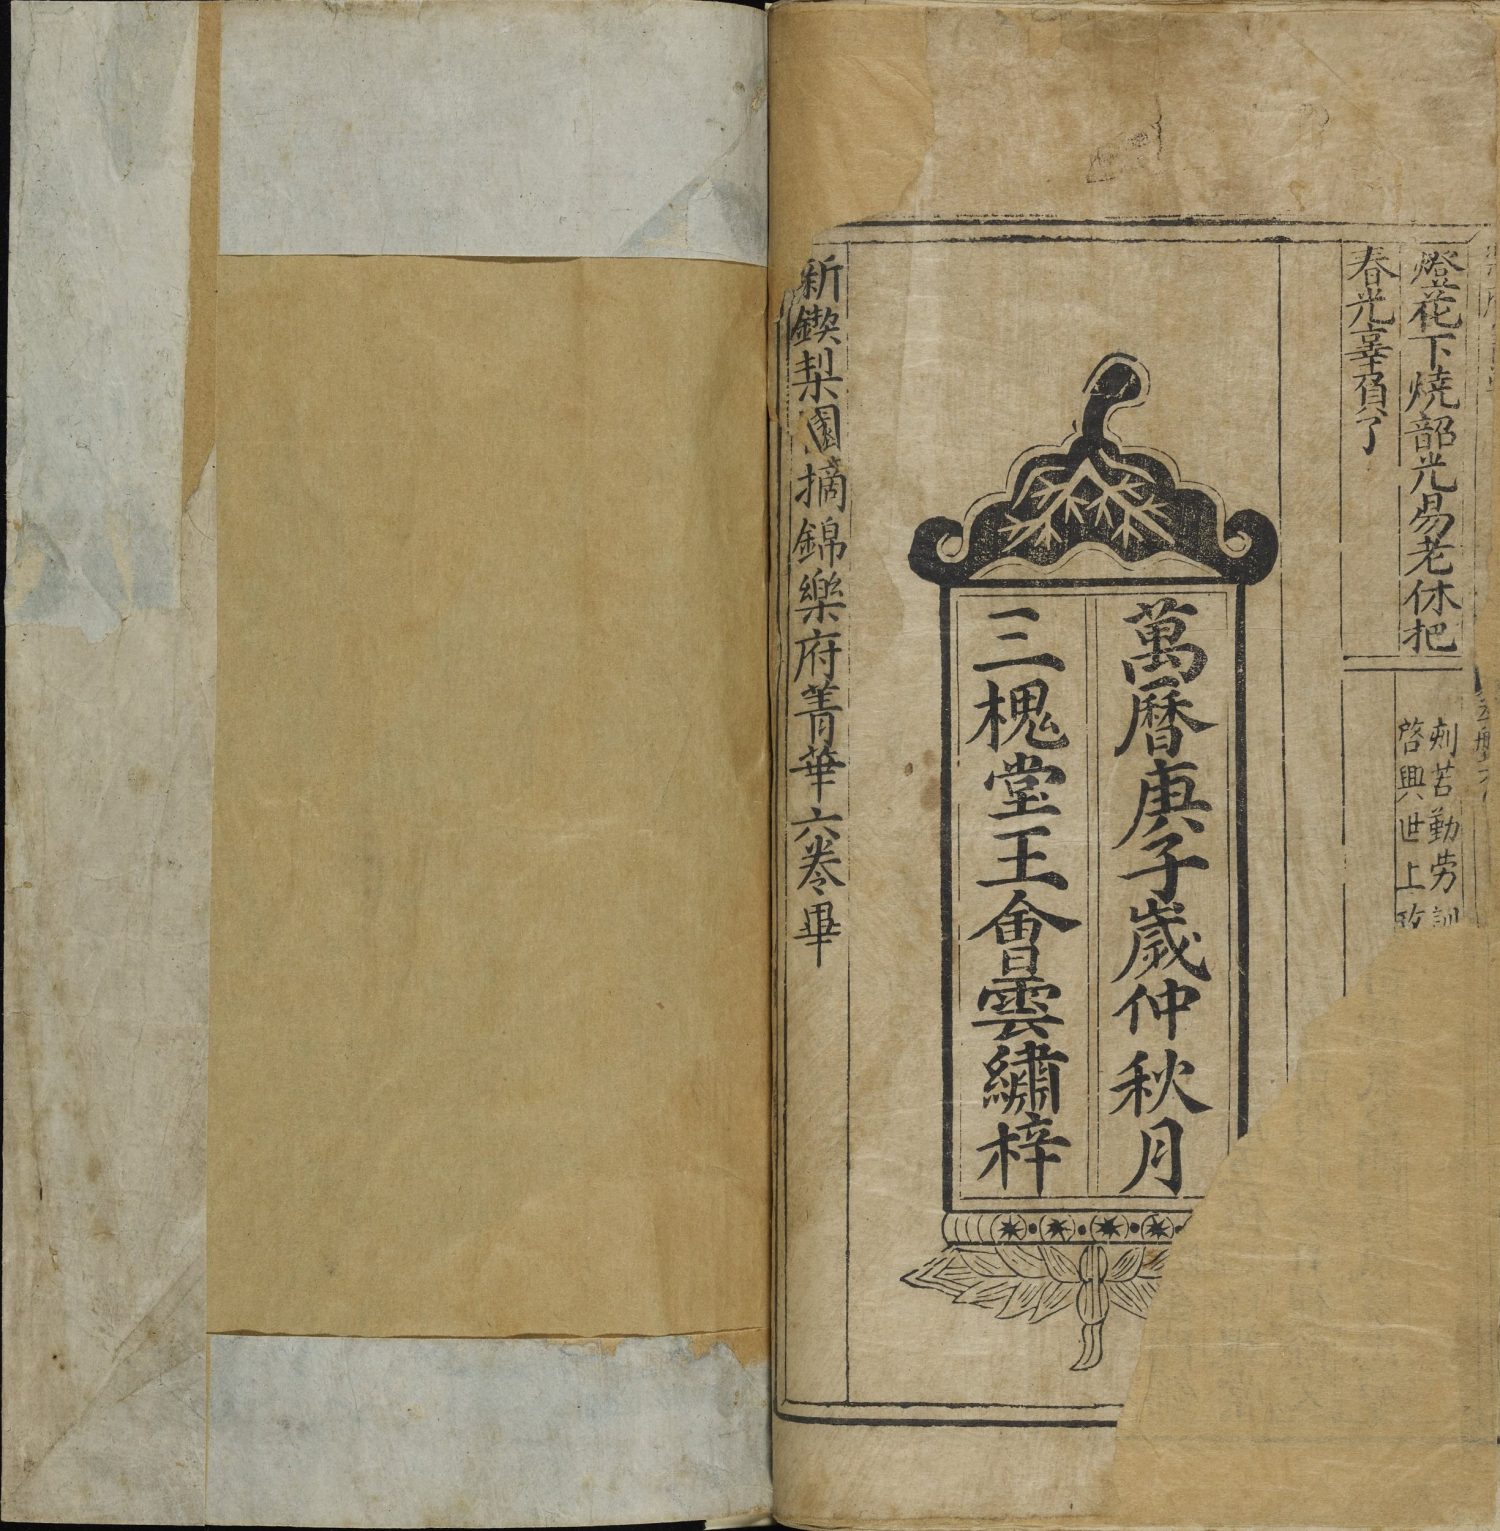 燈花下燒韶光易老休把
春光辜負了
刺苦勤勞訓
啓興世上孜
萬曆庚子歲仲秋月
三槐堂王會雲繡梓
新鍥梨園摘錦樂府菁華六卷畢